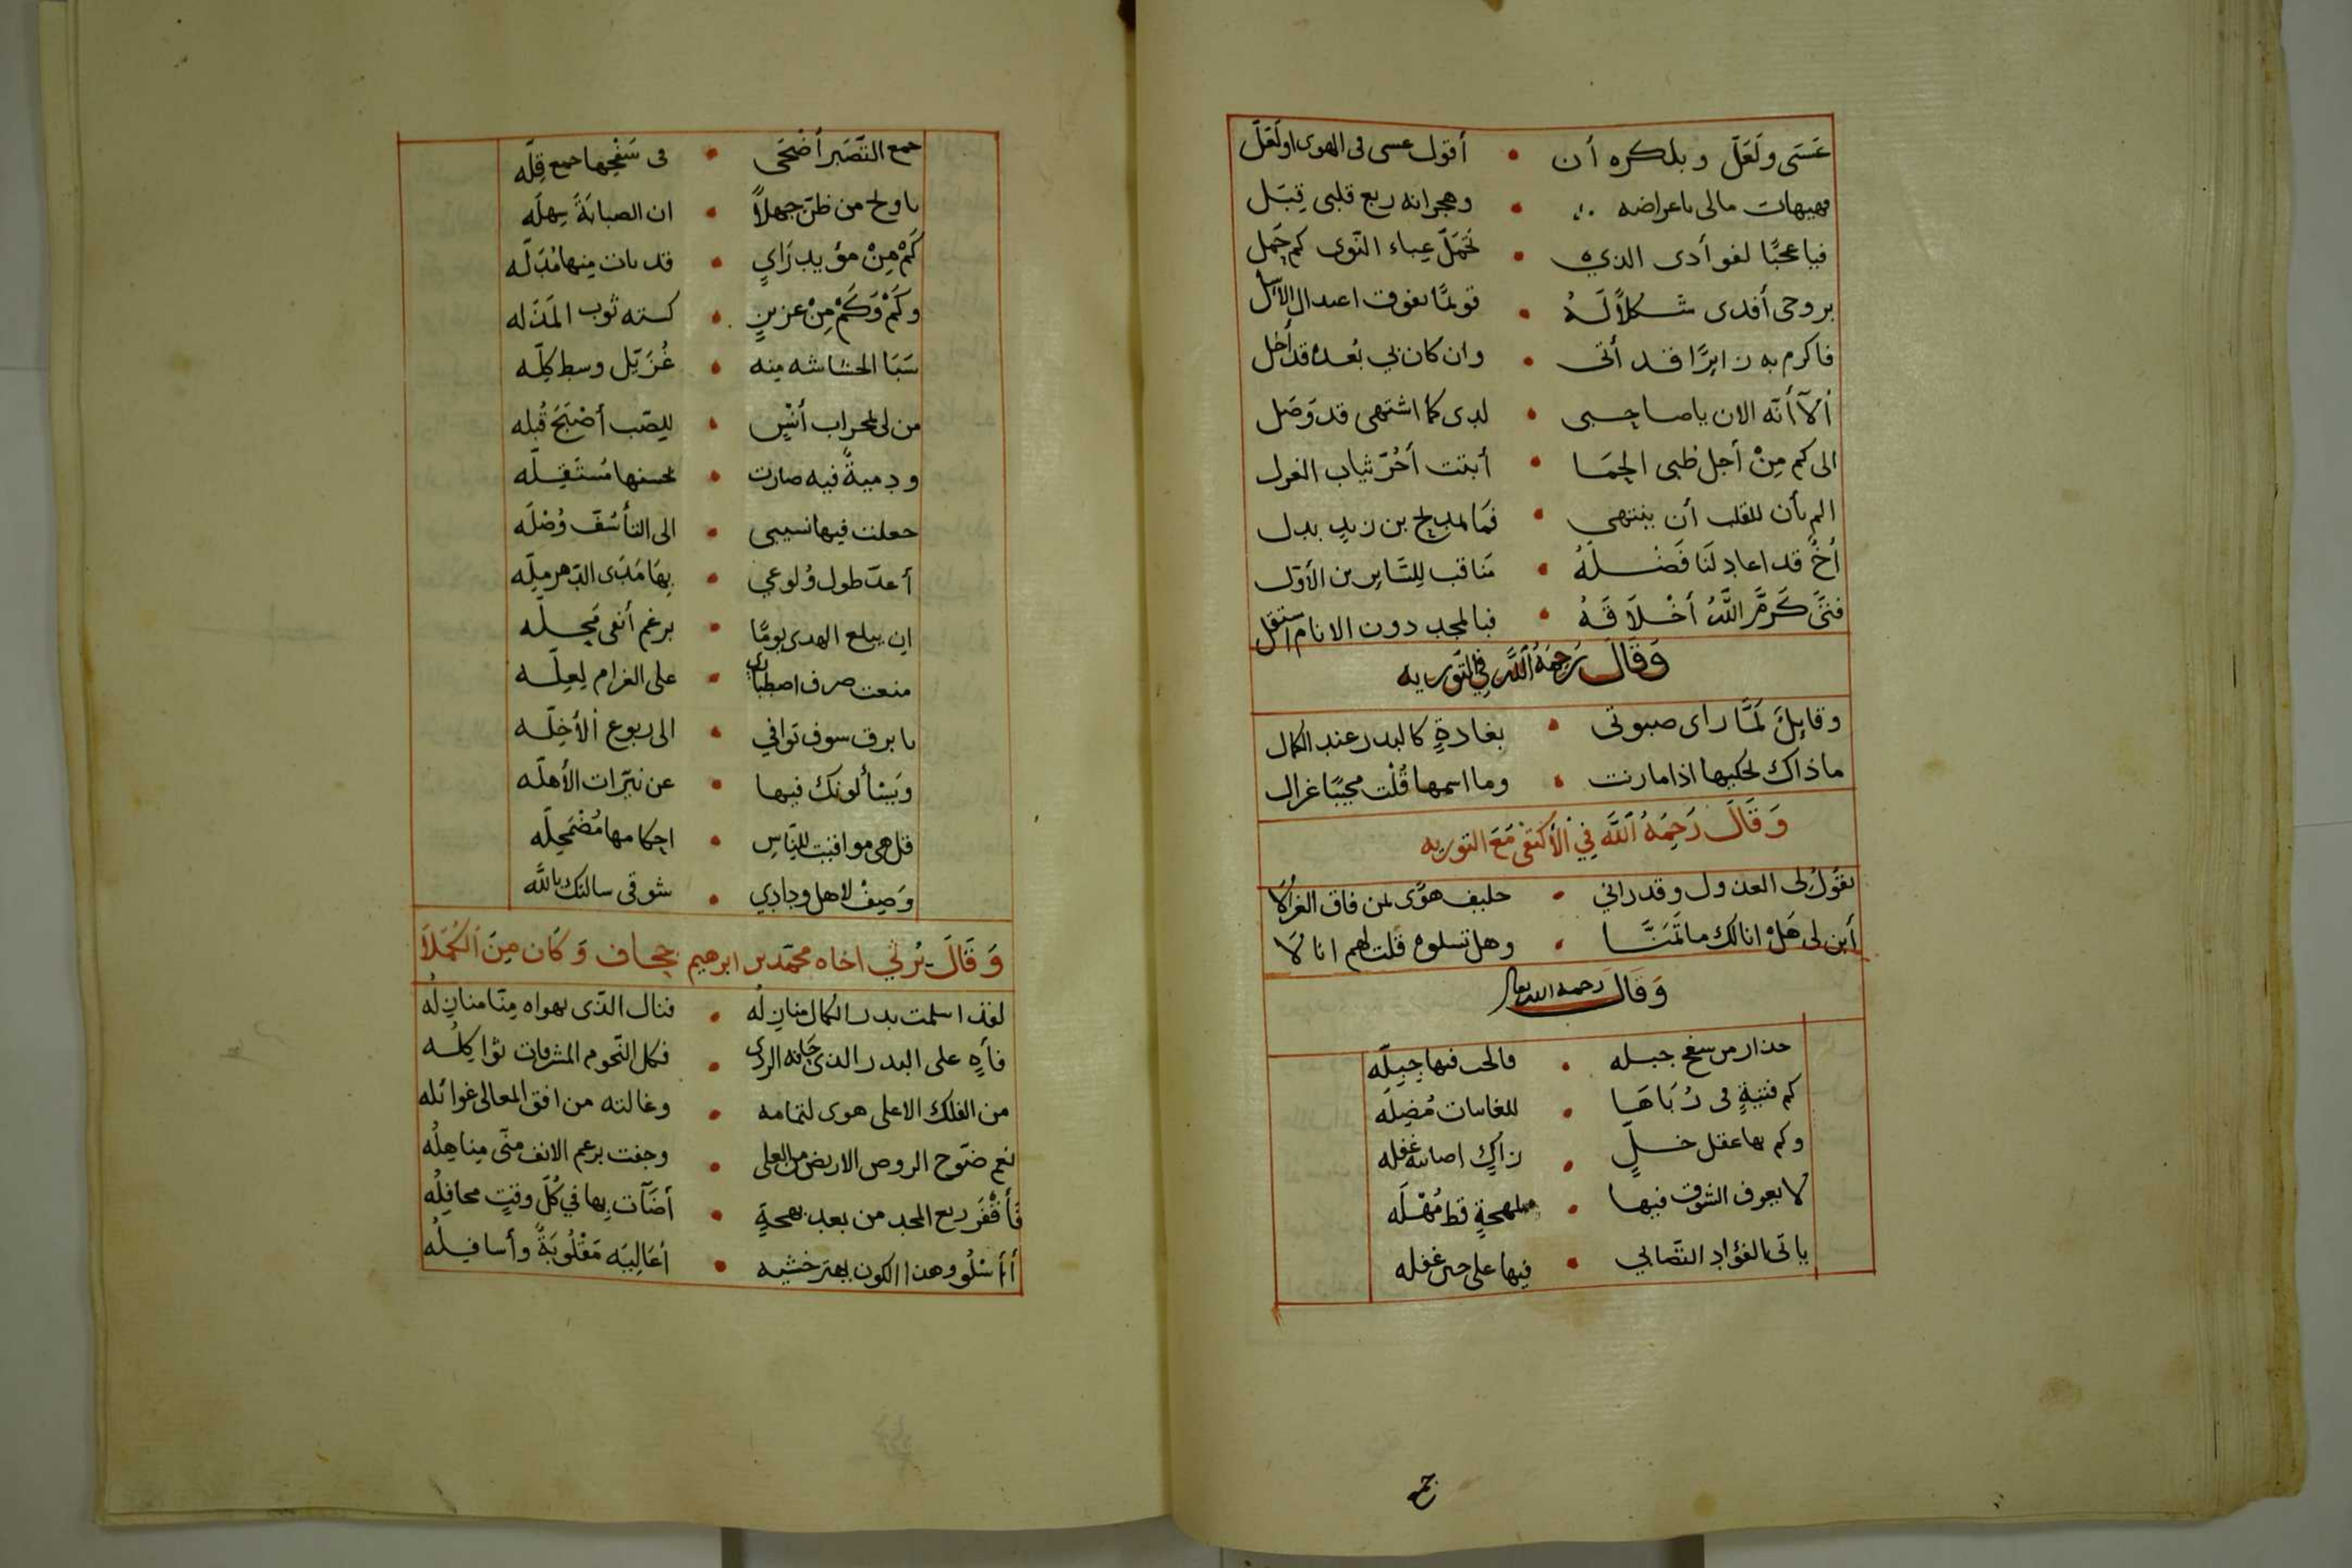 عَسَى ولَعَلّ وبلكره أن • أقول عسى فى الهوى او لَعَلّ
فهيهات مالى باعراضه • وهجرانه ربع قلبى قِبَل
فيا عجبًا لفوأدى الذي • تحَمّلَ عباء النّوى كم حَمل
بروحى أفدى شكلاً لَهُ • قويمًا يفوق اعتدال الأسل
فاكرم به زايرًا قد أتى • وان كان بي بُعده قد أخل
ألآ أنّه الان يا صاحبى • لدى كما اشتهى قد وَصَل
الى كم مِنْ أجل ظبى الحِمَا • أبتت أجُرّ ثياب الغزل
الم يأن للقلب أن ينتهي • فمَا لمديح بن زيد بدل
أخٌ قد اعاد لَنَا فَضْلُهُ • مَناقب للسّايرين الأوّل
فتىً كَرمَّ اللّهُ أخْلاَقَهُ • فبالمجد دون الانام استقل
وَقَالَ رَحِمَهُ اللّه فِي التّوريه
وقايلٍ لَمَّا راى صبوتى • بغادةٍ كالبدر عند الكمال
ماذاك يحكيها اذا مارنت • وما اسمها قُلْت مجيبًا غزال
وَقَالَ رَحِمَهُ اللّه فِي الأكتفَى مَعَ التوريه
يقُولُ لى العذول وقد رانى • حليف هوًى لمن فاق الغزالا
أبن لى هَلْ انالك ما تمَنَّا • وهل تسلوه قلت لهم انا لاَ
وَقَالَ رحمه الله تعالى
حذار من سفح جبله • فالحب فيها جِبِلّه
كم فتيةٍ فى رُبَاهَا • للغانيات مُضِلّه
وكم بها عقل خلٍّ • زاكٍ اصابته غفله
لا يعرف الشوق فيها • لمهجةٍ قط مُهْلَه
ياتى الفؤاد التّصابي • فيها على حين غفله
جمع
جمع التّصَبر أضْحَى • فى سَفْحِها جمع قِلّه
يا ويح من ظنّ جهلاً • ان الصبابَةَ سِهلَه
كَمْ مِنْ مؤيد رَايٍ • قد بات مِنها مُدَلّه
وكَمْ وَكَمْ مِنْ عزيزٍ • كسته ثوب المَذَله
سَبَا الحشاشه مِنه • غُزَيّل وسط كِلّه
من لى بمحراب أنْسٍ • للِصّب أصْبَحَ قُبله
ودميةً فيه صارت • بحسنها مُسْتَقِلّه
جعلت فيها نسيبى • الى التأسُّف وُصْلَه
أعدّ طول وُلوعي • بِهَا مَدَى الدّهر مِلّه
ان يبلع الهدى يومًا • برغم أنفى مَحِلّه
منعت صرف اصطبارى • على الغرام لِعِلّه
يا برق سوف توافي • الى ربوع الأخِلّه
ويَسْألونك فيها • عن نيّرات الأهلّه
قل هى مواقيت للنّاسِ • احكامها مُضْمَحِلّه
وَصِفْ لاهل ودادِي • شوقى سالتك باللّه
وَقَالَ يُرثي اخاه محمّد بن ابرهيم جحاف وَكَان مِنَ الكُمَلاَ
لقد اسلمت بدر الكمال منازلُه • فنال الذّى يهواه مِنّا منازلُه
فأهٍ على البدر الذى خانه الردى • فكل النّجوم المشرقات ثواكِلُه
من الفلك الاعلى هوى لتمامه • وغالته من افق المعالى غوائله
نعم ضَوّح الروض الاريض من العلى • وجفت برغم الانف منّى مناهِلُه
فأقْفَر ربع المجد من بعد بهجةٍ • أضآت بِها في كُلّ وقتٍ محافِلُه
أأسْلُو وهذا الكون بعد خشيه • أعَالِيَه مَقْلُوبَةً وأسافِلُه